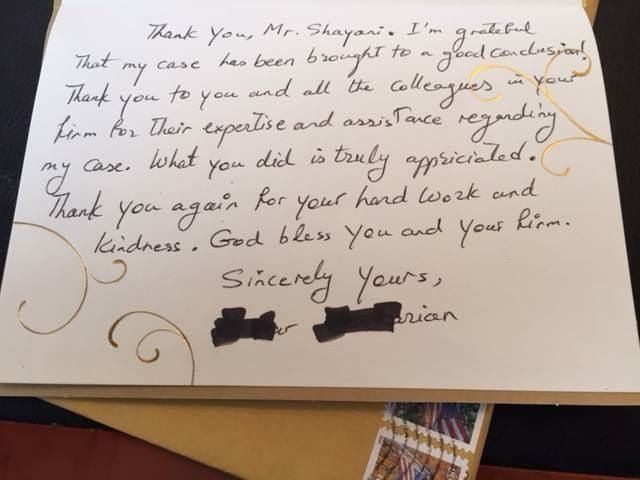 Thank you, Mr. Shayari. I'm grateful
That my case has been brought to a good conclusion!
Thank you to you and all the colleagues in your
firm for Their expertise and assisTance regarding
my case. What you did is truly appriciated.
Thank you again for your hard work and
kindness. God bless you and your firm.
Sincerely yours,